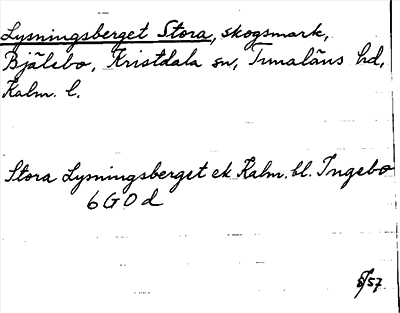 Lysningsberget Stora, skogsmark,
Bjälebo, Kristdala sn, Tunaläns hd,
Kalm. l.
Stora Lysningsberget ek Kalm. bl. Ingebo
6G0d
/57